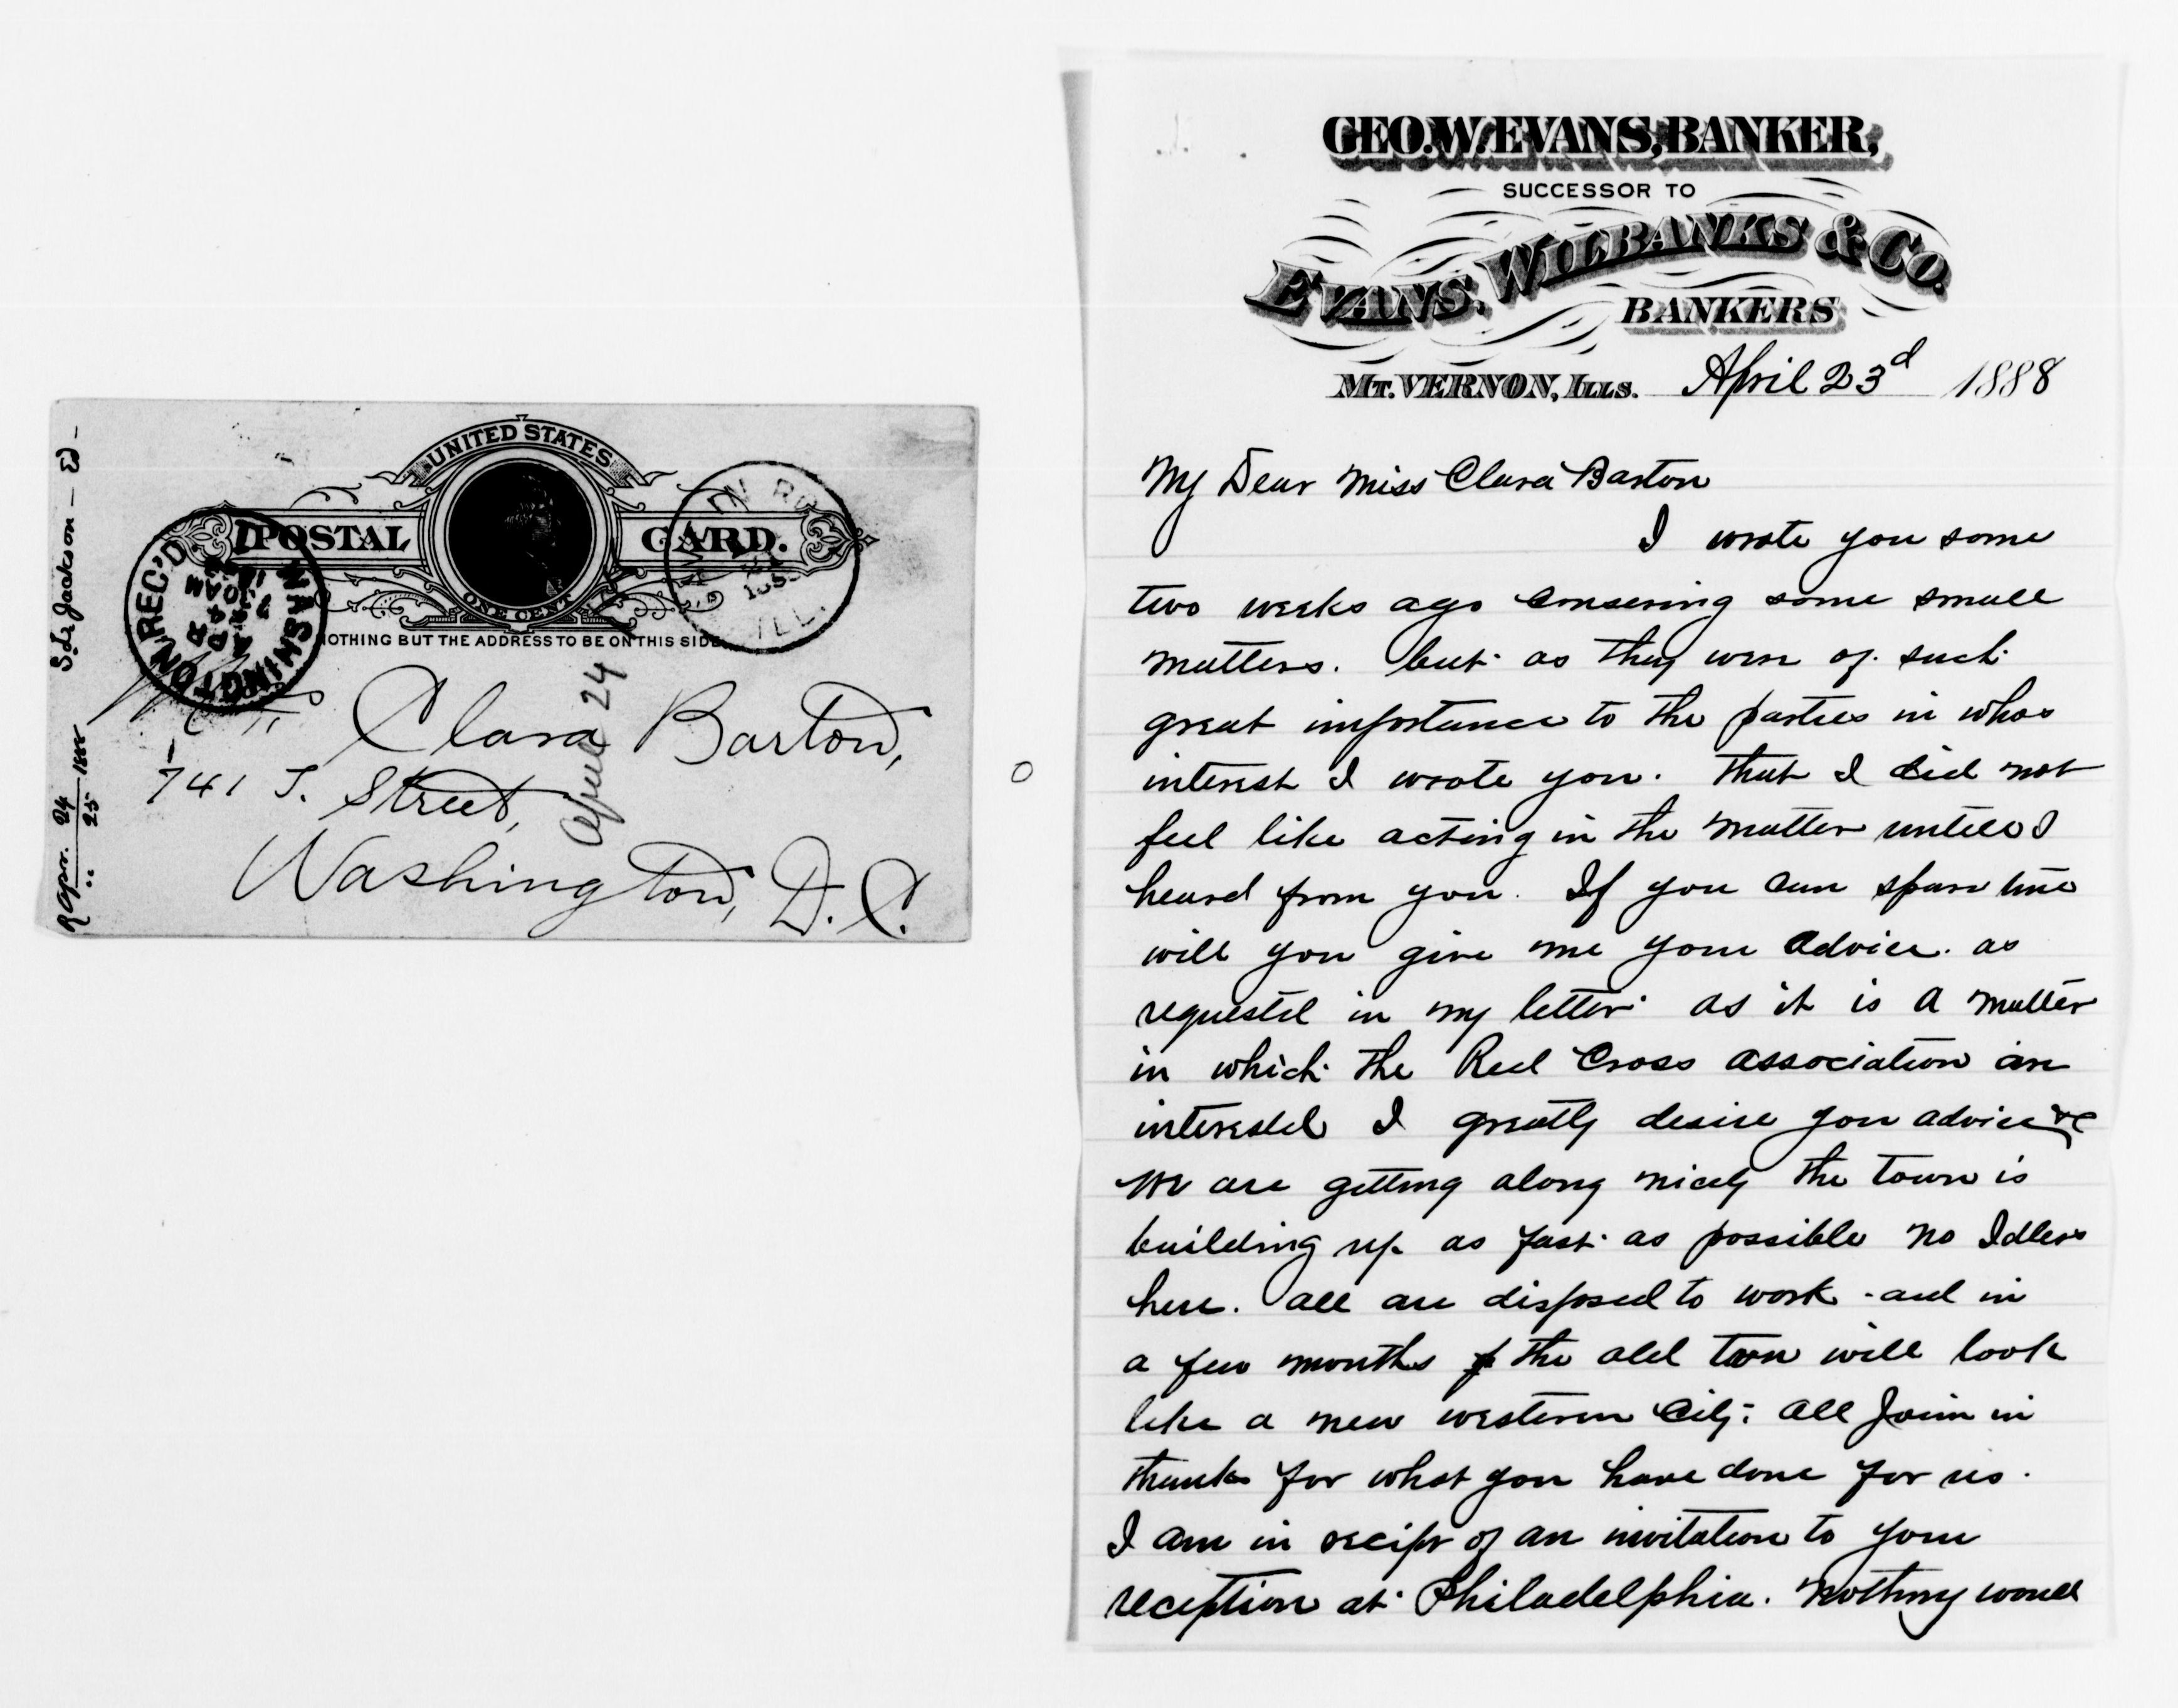 S. L. Jackson — E) —
R Apr. 24 1888
" 25
UNITED STATES
POSTAL CARD.
ONE CENT
NOTHING BUT THE ADDRESS TO BE ON THIS SIDE
WASHINGTON REC'D
APR
7
ILL.
April 24
Miss Clara Barton,
741 T. Street,
Washington, D. C.
GEO. W. EVANS, BANKER,
SUCCESSOR TO
EVANS, WILBANKS & CO.
BANKERS
MT. VERNON, ILLS. April 23d 1888
My Dear Miss Clara Barton
I wrote you some
two weeks ago some small
matters. but as they were of such
great importance to the parties in whos
interest I wrote you. that I did not
feel like acting in the matter untill I
heard from you. If you can spare time
will you give me your advice. as
requested in my letter as it is a matter
in which the Red Cross association are
interested I greatly desire you advice &c
We are getting along nicely the town is
building up as fast as possible no Idlers
here. all are disposed to work - and in
a few months the old town will look
like a new western City; all Join in
thanks for what you have done for us.
I am in recipt of an invitation to your
reception at Philadelphia. nothing would